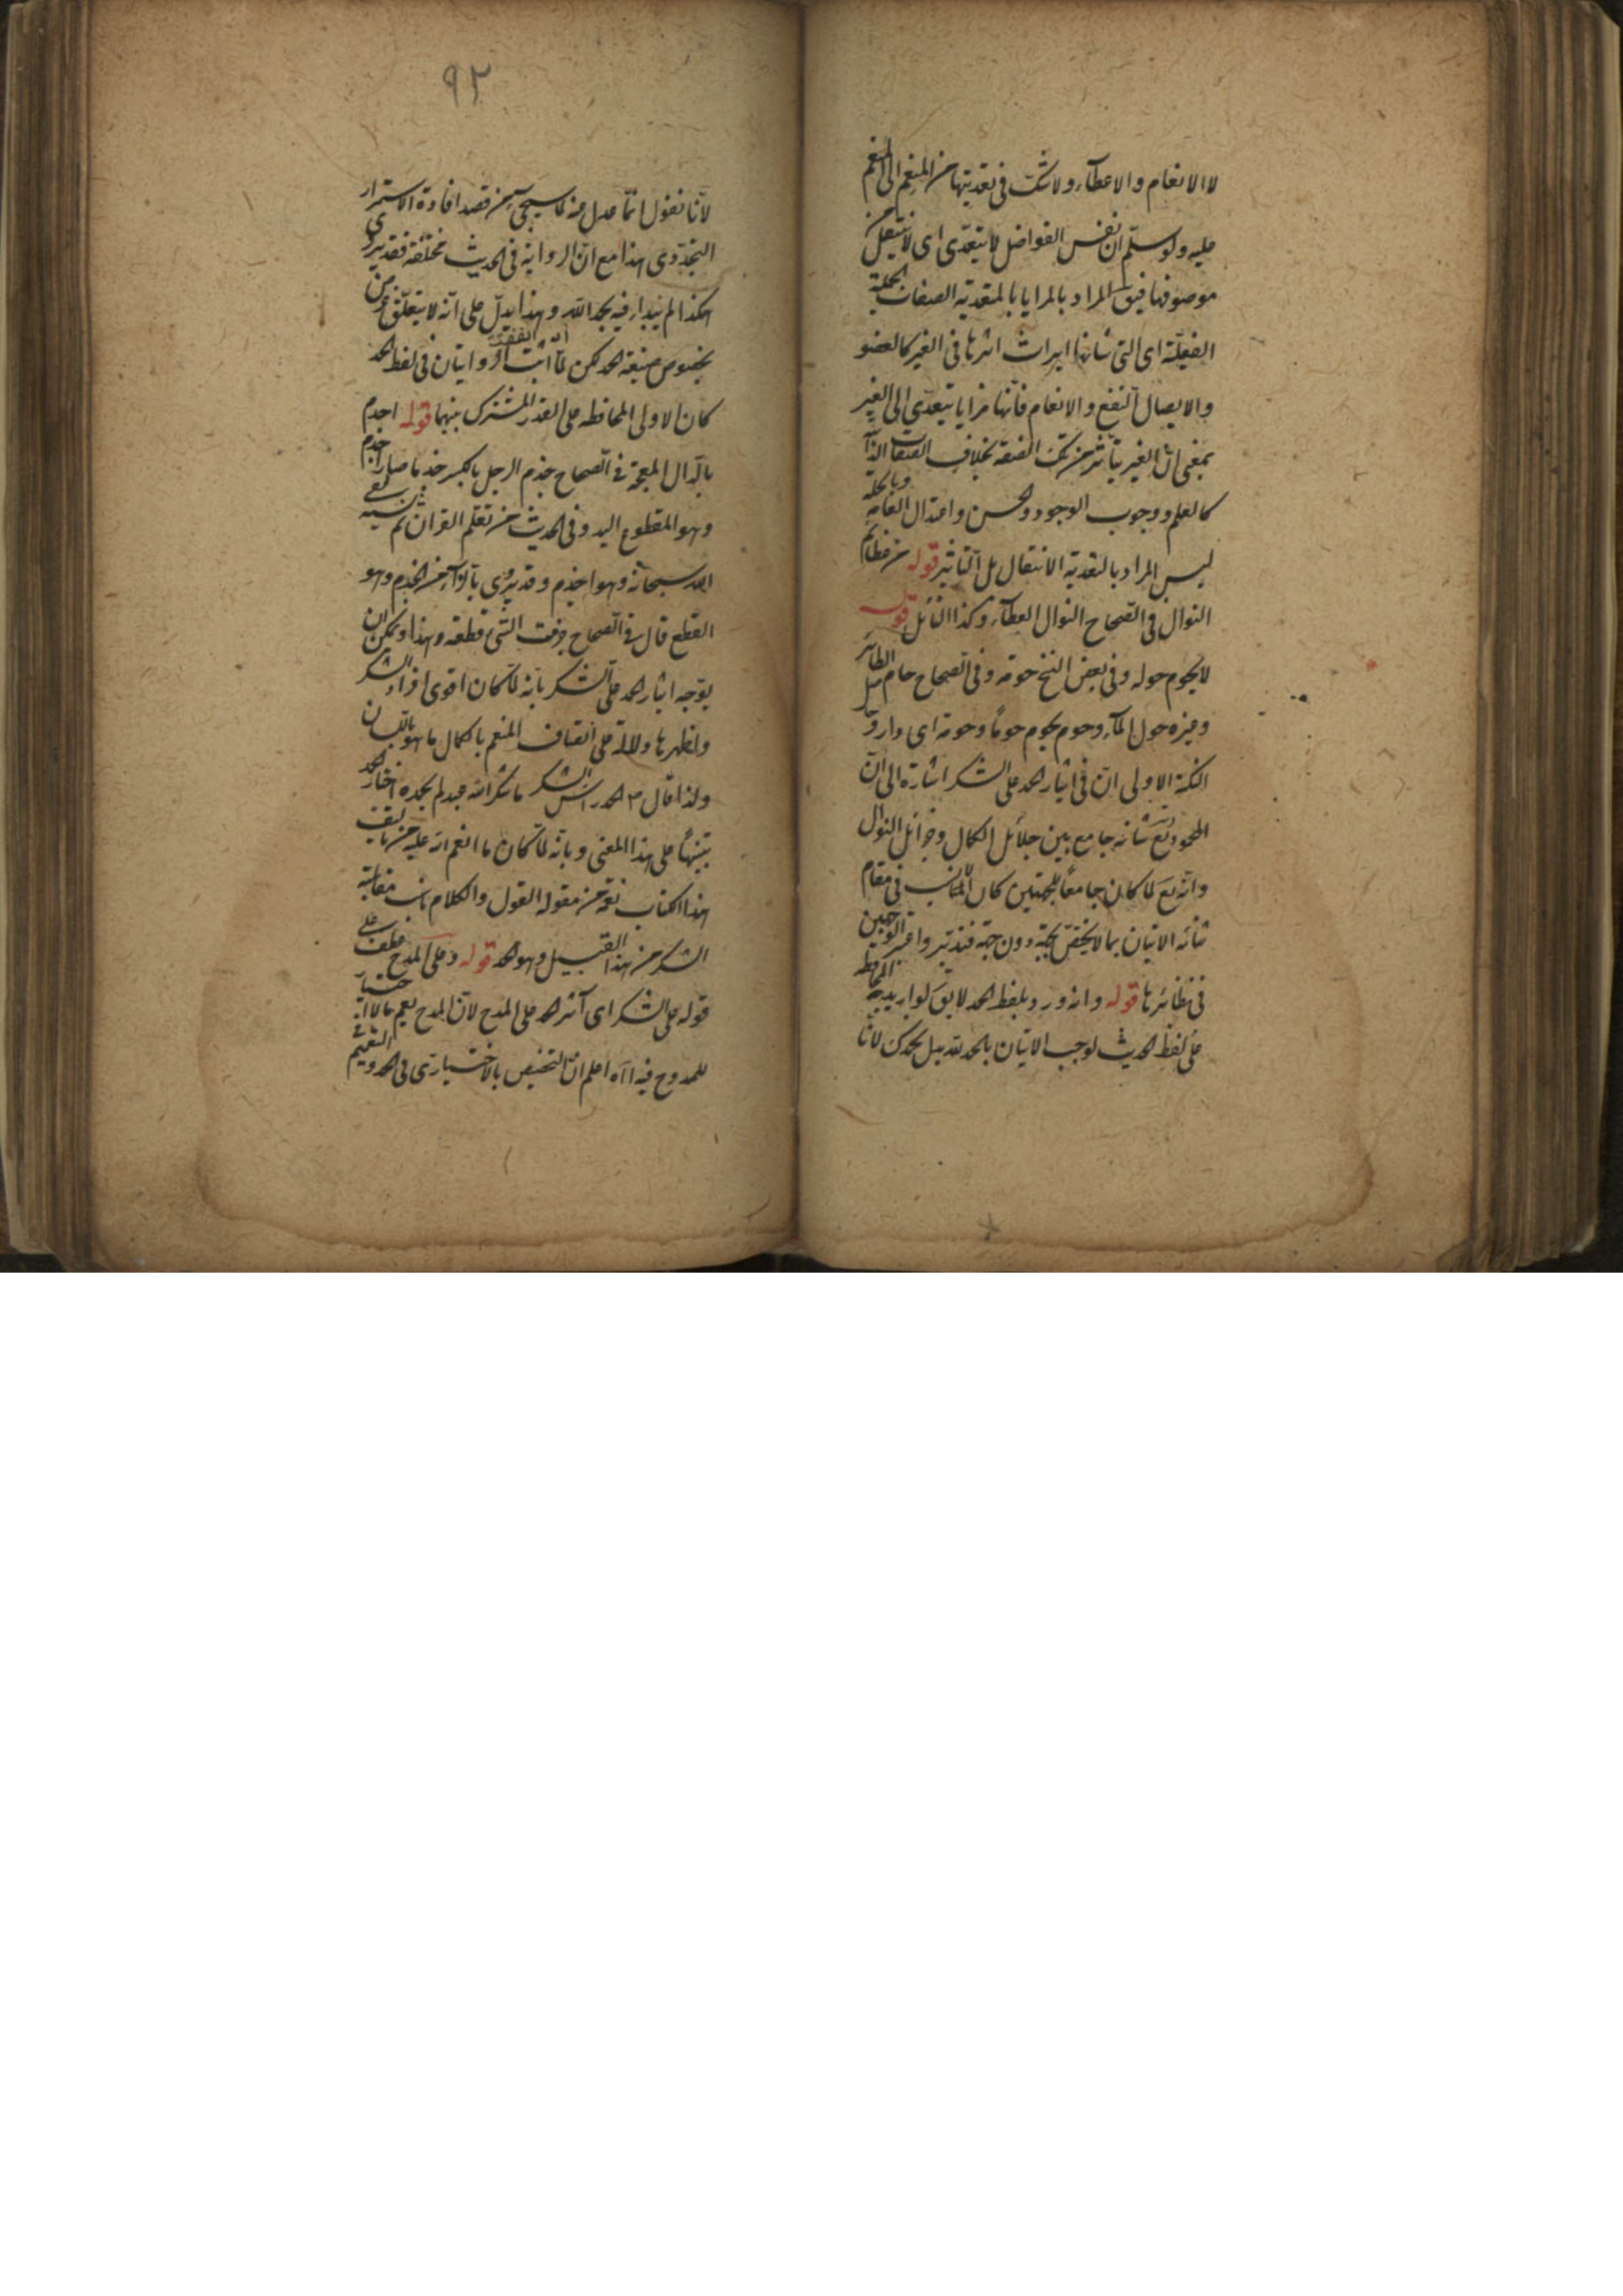 لا الانعام والاعطاء ولا شك فى تعديتها من المنعم الى المنعم
عليه ولو سلّم ان نفس الفواضل لا يتعدّى اى لا ينتقل عن
موصوفها فيق المراد بالمزايا المتعدية الصفات الجميلة
الفعليّة اى التى شانها ايراث اثرها فى الغير كالعفو
والايصال النفع والانعام فانّها مزايا يتعدّى الى الغير
بمعنى انّ الغير يتأثر من تلك الصفة بخلاف الصفات الذا
كالعلم ووجوب الوجود والحسن واعتدال القامة وبالجملة
ليس المراد بالتعدية الانتقال بل التاثير قوله من عظائم
النوال فى الصّحاح النوال العطاء وكذا النائل قوله
لا يحوم حوله وفى بعض النسخ حومه وفى الصحاح حام الطائر
وغيره حول الماء وحوم يحوم حوماً وحومة اى دار
النكتة الاولى انّ فى ايثار الحمد على الشكر اشارة الى انّ
المحمود تع شانه جامع بين جلائل الكمال وجزائل النوال
وانّه تع لما كان جامعاً للجهتين كان المناسب فى مقام
ثنائه الاتيان بما لا يختصّ بجهة دون جهة فتدبر واعتبر الوجهين
فى نظائرها قوله وانه ورد بلفظ الحمد لا يقَ لو اريد به المحافظة
على لفظ الحديث لوجب الاتيان بالحمد لله بدل نحمدك لانّا
٩٢
لانّا نقول انّما عدل عنه لما سيجئ من قصد افادة الاستمرار
التجدّدى هذا مع انّ الرواية فى الحديث مختلفة فقد يروى
هكذا لم يبدأ فيه بحمد الله وهذا يدلّ على انّه لا يتعلّق غرض
بخصوص صيغة الحمد لكن لما اتفقت الروايتان فى لفظ الحمد
كان الاولى المحافظه على القدر المشترك بينهما قوله اجذم
بالذال المعجمة فى الصحاح جذم الرجل بالكسر جذما صار اجذم
وهو المقطوع اليد وفى الحديث من تعلّم القران ثم نسيه لقى
الله سبحانه وهو اجذم وقد يروى بالزاء من الجزم وهو
القطع قال فى الصحاح جزمت الشئ قطعته وهذا ويمكن ان
يوجّه ايثار الحمد على الشكر بانّه لمّا كان اقوى افراد الشكر
واظهرها دلالة على اتصاف المنعم بالكمال ما هو باللسان
ولذا قال ۴ الحمد راس الشكر ما شكر الله عبد لم يحمده اختار الحمد
تنبيهاً على هذا المعنى وبانّه لمّا كان ما انعم الله عليه من تاليف
هذا الكتاب نعمة من مقولة القول والكلام ناسب مقابلته
الشكر من هذا القبيل وهو الحمد قوله وعلى المدح عطف على
قوله على الشكر اى آثر الحمد على المدح لانّ المدح يعم ما لا اختيار
للممدوح فيه اه اعلم انّ التخصيص بالاختيارى فى الحمد والتعميم